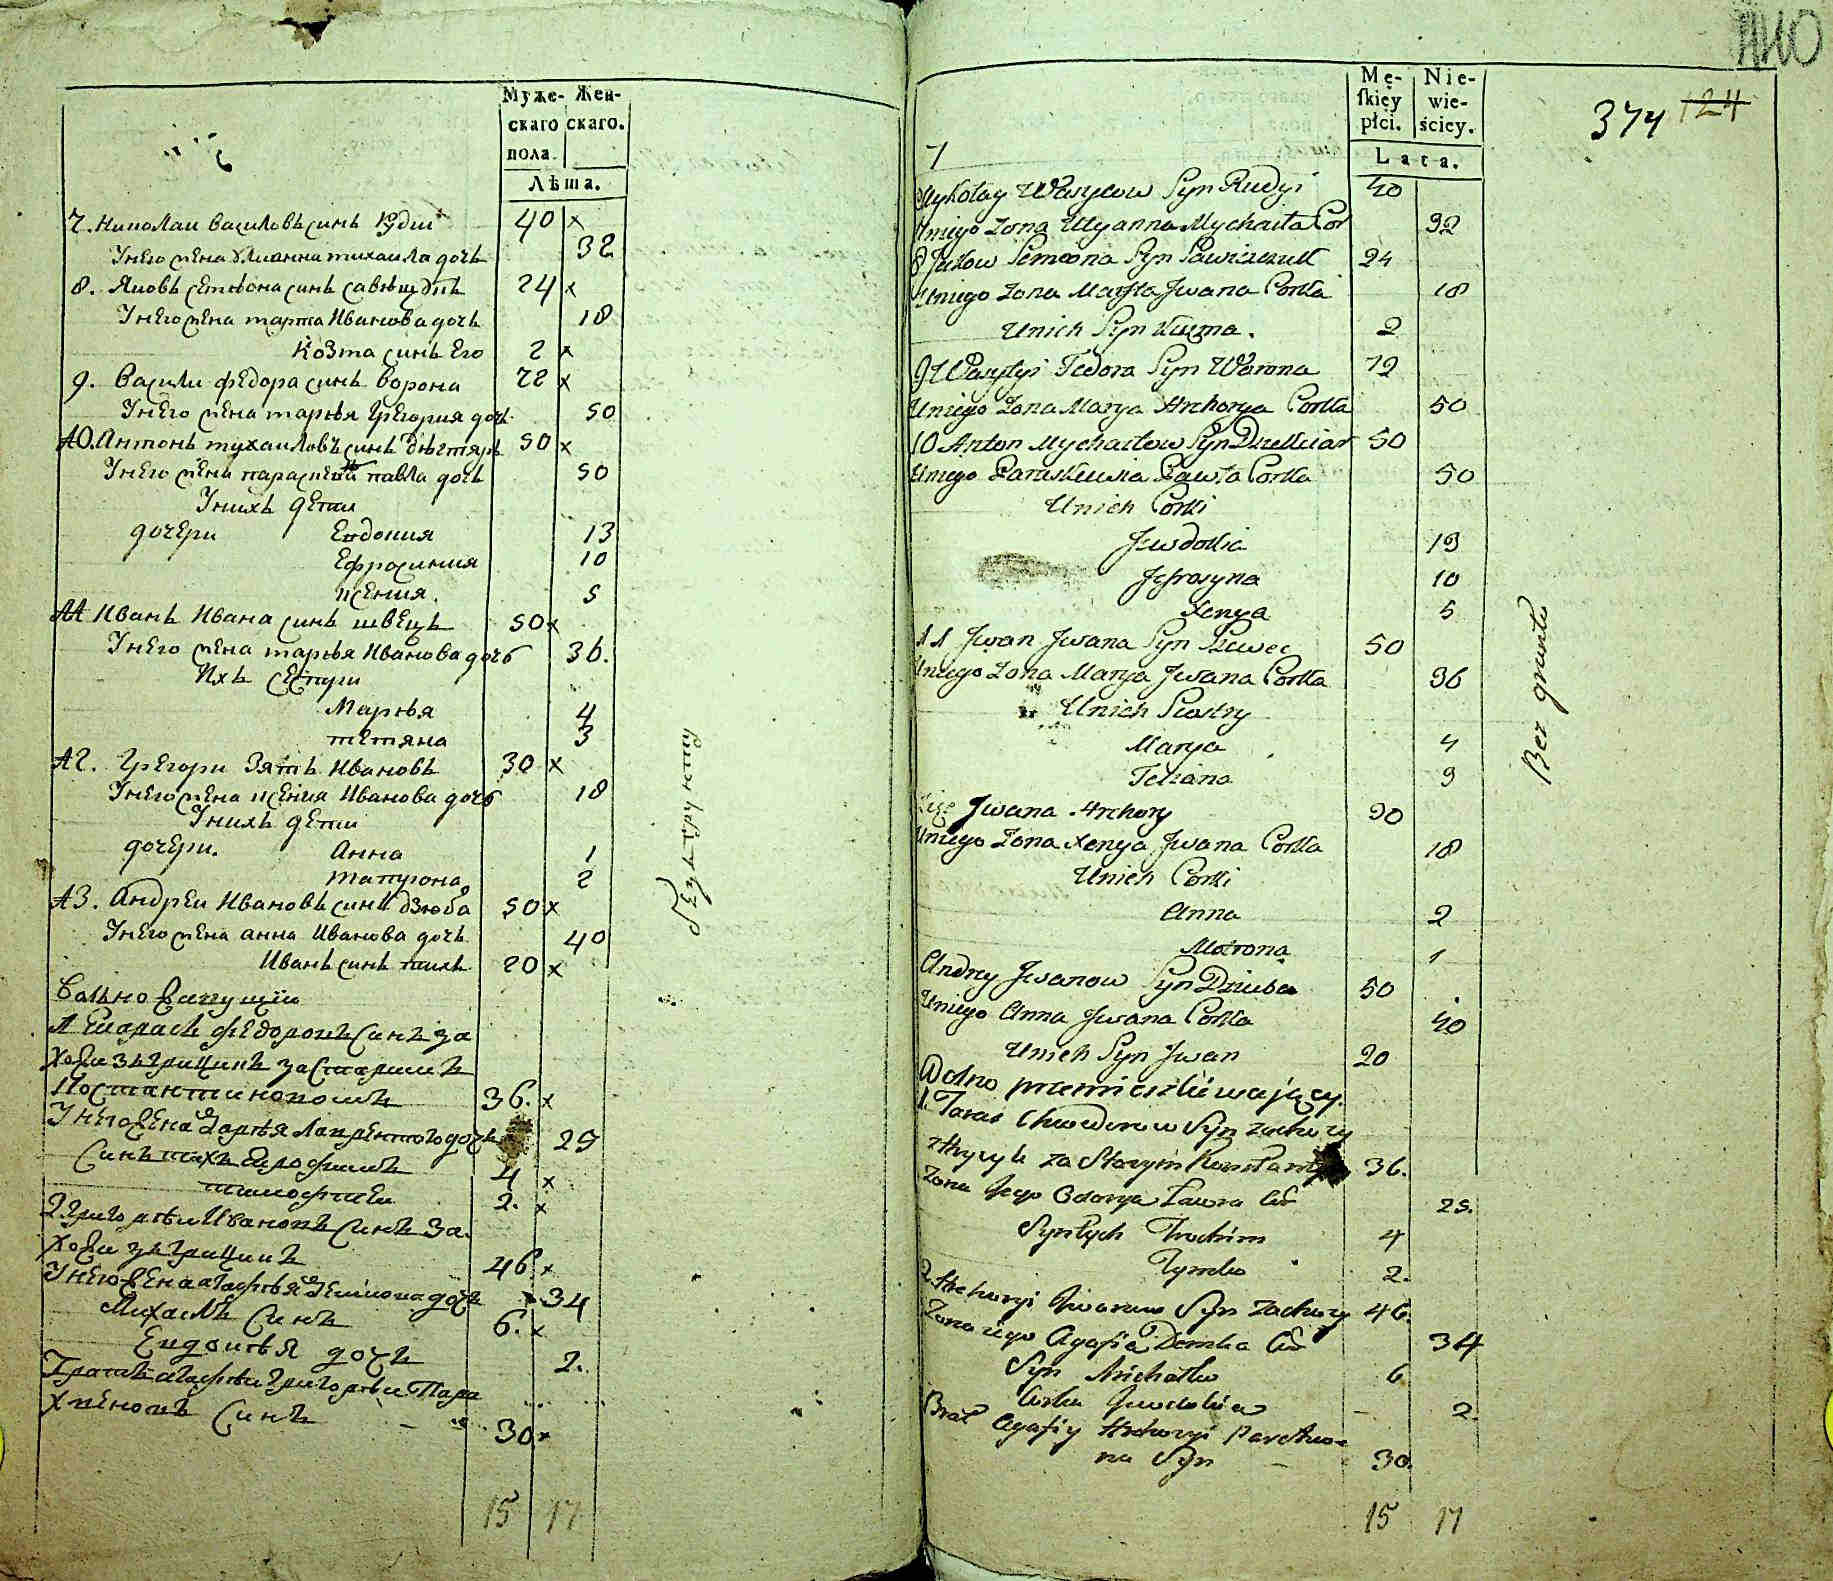 Муже- Жен-
скаго скаго.
пола.
Лѣта.
7. Николаи василовъ синъ Рудии 40 x
Унего жена Улианна михаила дочь 32
8. Яковъ семѣона синъ савѣщукъ 24 x
Унего жена марта Иванова дочь 18
Козма синъ Его 2 x
9. Васили федора синъ ворона 72 x
Унего жена марья Грегория дочь 50
10. Антонъ михаиловъ синъ дѣгтяръ 50 x
Унего жена параскева павла дочь 50
Унихъ дети
дочери Евдокия 13
Ефросиния 10
ксения. 5
11 Иванъ Ивана синъ швецъ 50 x
Унего жена марья Иванова дочь 36.
Ихъ сестри
Марья 4
тетяна 3
12. Грегори зять Ивановъ 30 x
Унего жена ксения Иванова дочь 18
Унихъ дети
дочери. Анна 1
матрона 2
13. Андреи Ивановъ синъ дзюба 50 x
Унего жена анна Иванова дочь 40
Иванъ синъ тихъ 20 x
1 Тарасъ федоровъ синъ за
36. x
29
4 x
2. x
2. Григорѣи Ивановъ синъ за.
46 x
34
Михаилъ синъ 6. x
Евдокѣя дочь 2.
синъ 30 x
15 17
Безъ грунту
Mę- Nie-
skiey wie-
płci. ściey.
Lata.
374 124
7
Mykołay Wasylow Syn Rudyi 40
Uniego Zona Ulyanna Mychaiła Cor 32
8 Jakow Semiona Syn Sawiszczuk 24
Uniego Zona Marta Jwana Corka 18
Unich Syn Kuzma. 2
9 Wasylyi Fedora Syn Worona 72
Uniego Zona Marya Hrehorya Corka 50
10 Anton Mychaiłow Syn Dziekciar 50
Uniego Paraskewia Pawła Corka 50
Unich Corki
Jewdokia 13
Jefrosyna 10
Xenya 5
11 Jwan Jwana Syn Szwec 50
Uniego Zona Marya Jwana Corka 36
Unich Siostry
Marya 4
Tetiana 3
Zięc Jwana Hrehory 30
Uniego Zona Xenya Jwana Corka 18
Unich Corki
Anna 2
Matrona 1
Andrey Jwanow Syn Dziuba 50
Uniego Anna Jwana Corka 40
Unich Syn Jwan 20
Wolno przemieszkiwający.
1. Taras Chwedorow Syn zachozy
36.
Zona Jego Odarya Ławra Cor 29.
Synych Trochim 4
Tymko 2.
2 Hrehoryi Jwanow Syn zachozy 46.
Zona iego Agafia Demka Cor 34
Syn Michałko 6
Corka Jewdokia 2.
Brat Agafiy Hrehoryi Parchwe=
na Syn 30.
15 17
Bez gruntu